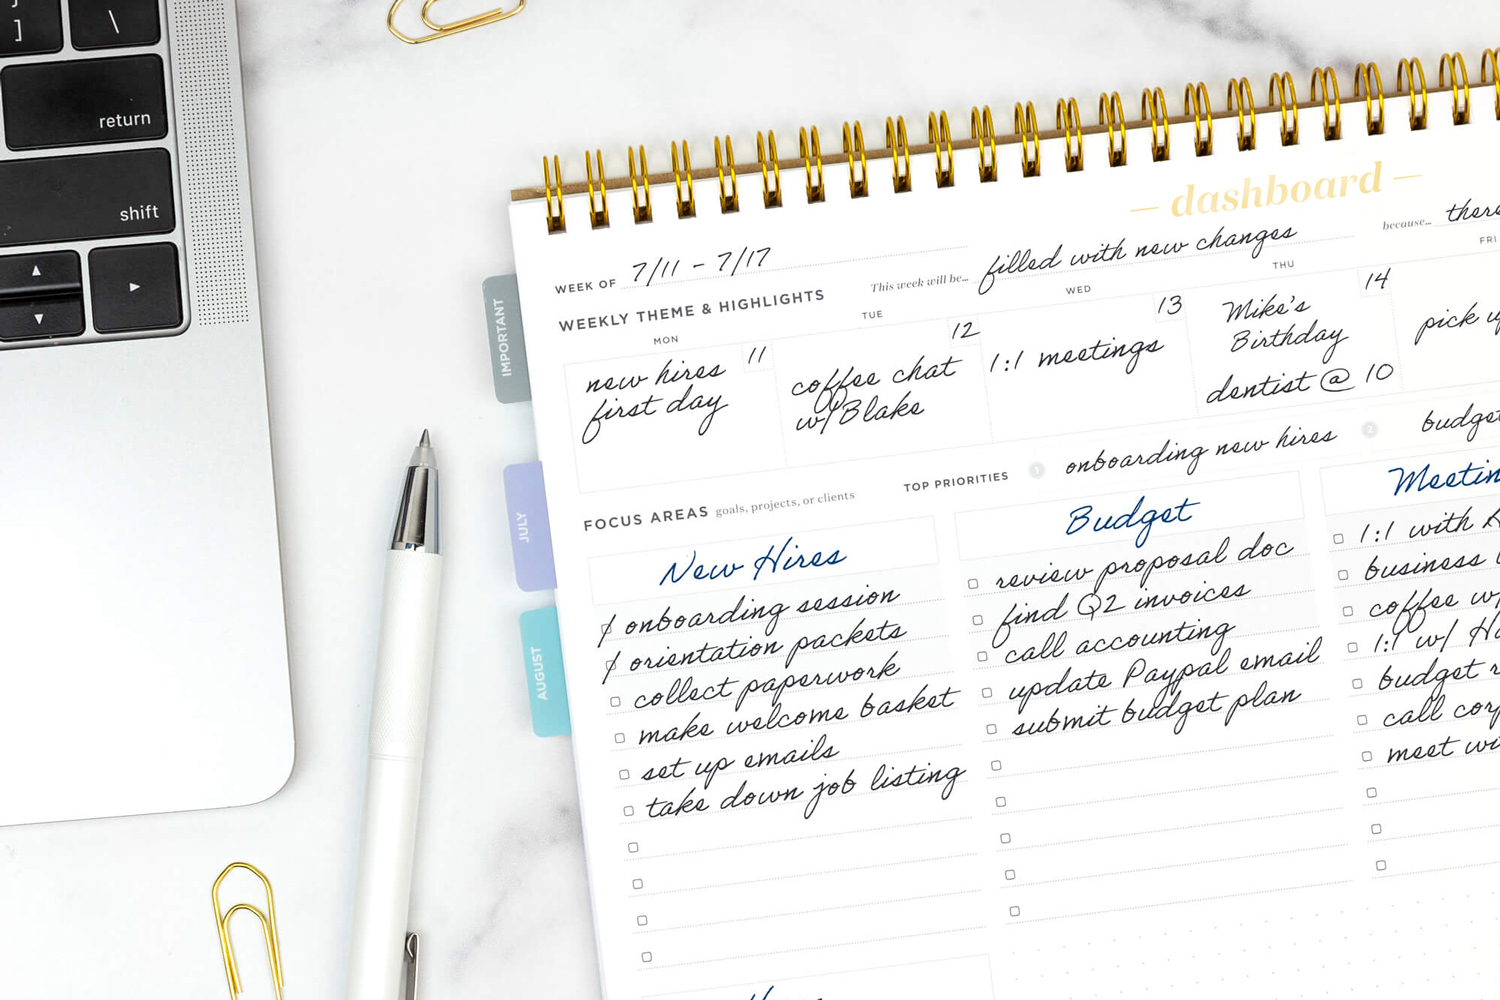 ] \
return
shift
dashboard
WEEK OF 7/11 - 7/17
This week will be... filled with new changes
because...
WEEKLY THEME & HIGHLIGHTS
MON
11
new hires
first day
TUE
12
coffee chat
w/ Blake
WED
13
1:1 meetings
THU
14
Mike's
Birthday
dentist @ 10
FRI
pick
TOP PRIORITIES
1 onboarding new hires
2 budget
FOCUS AREAS goals, projects, or clients
New Hires
onboarding session
orientation packets
collect paperwork
make welcome basket
set up emails
take down job listing
Budget
review proposal doc
find Q2 invoices
call accounting
update Paypal email
submit budget plan
1:1 with
business
coffee w/
1:1 w/
budget
call
meet
IMPORTANT
JULY
AUGUST